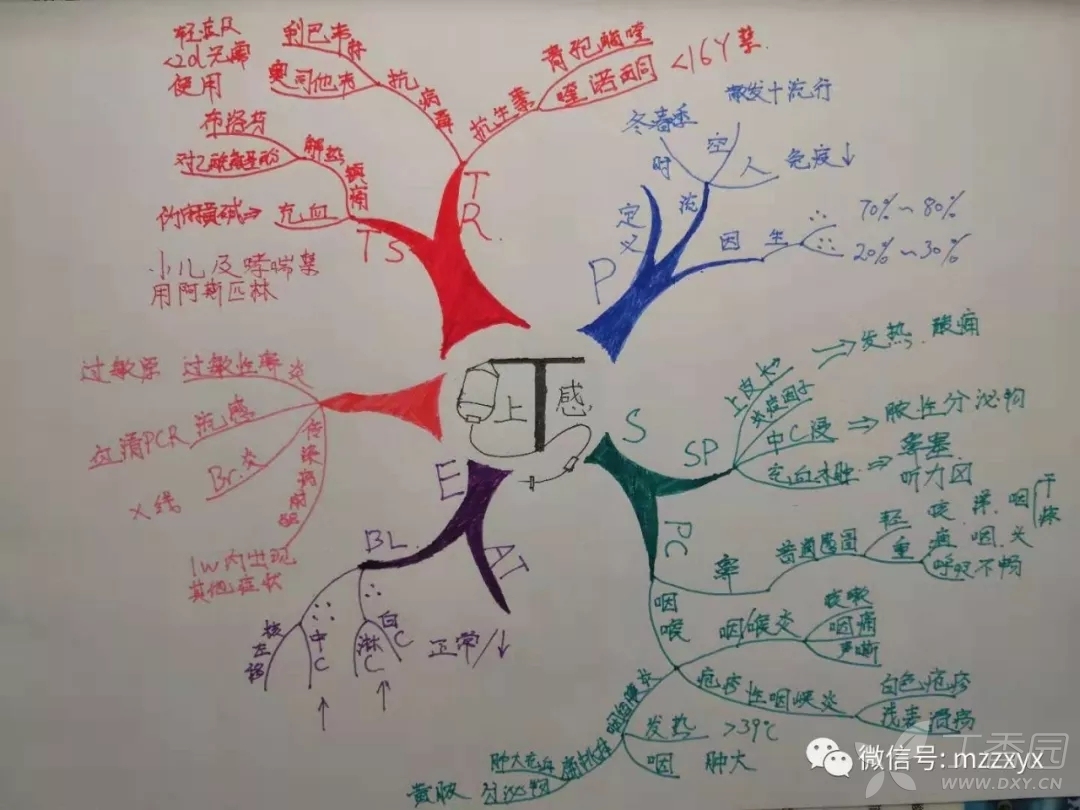 上感
P
定义
流
时
冬春季
空
散发+流行
人
免疫↓
因
生
∴
70%~80%
∵
20%~30%
S
SP
上皮
炎症因子
→发热 酸痛
中C浸→脓性分泌物
充血水肿→
鼻塞
听力
PC
鼻
普通感冒
轻
咳
咽
干
痒
重
咽
呼吸不畅
咽喉
咽喉炎
咳嗽
咽痛
声嘶
疱疹性咽峡炎
白色疱疹
浅表溃疡
发热
>39℃
咽
肿大
肿大充血
分泌物
黄脓
E
BL
∴
核左移
中C
↑
∴
淋C
↑
白C
AT
正常/↓
过敏原
过敏性鼻炎
血清PCR
流感
X线
Br.炎
传染病
1w内出现
其他症状
TR
抗病毒
利巴韦林
奥司他韦
轻症及
<2d无需
使用
抗生素
青孢
喹诺酮
<16Y禁
TS
解热镇痛
布洛芬
对乙酰氨基酚
充血
伪麻黄碱→
小儿及哮喘禁
用阿斯匹林
微信号: mzzxyx
丁香园
WWW.DXY.CN